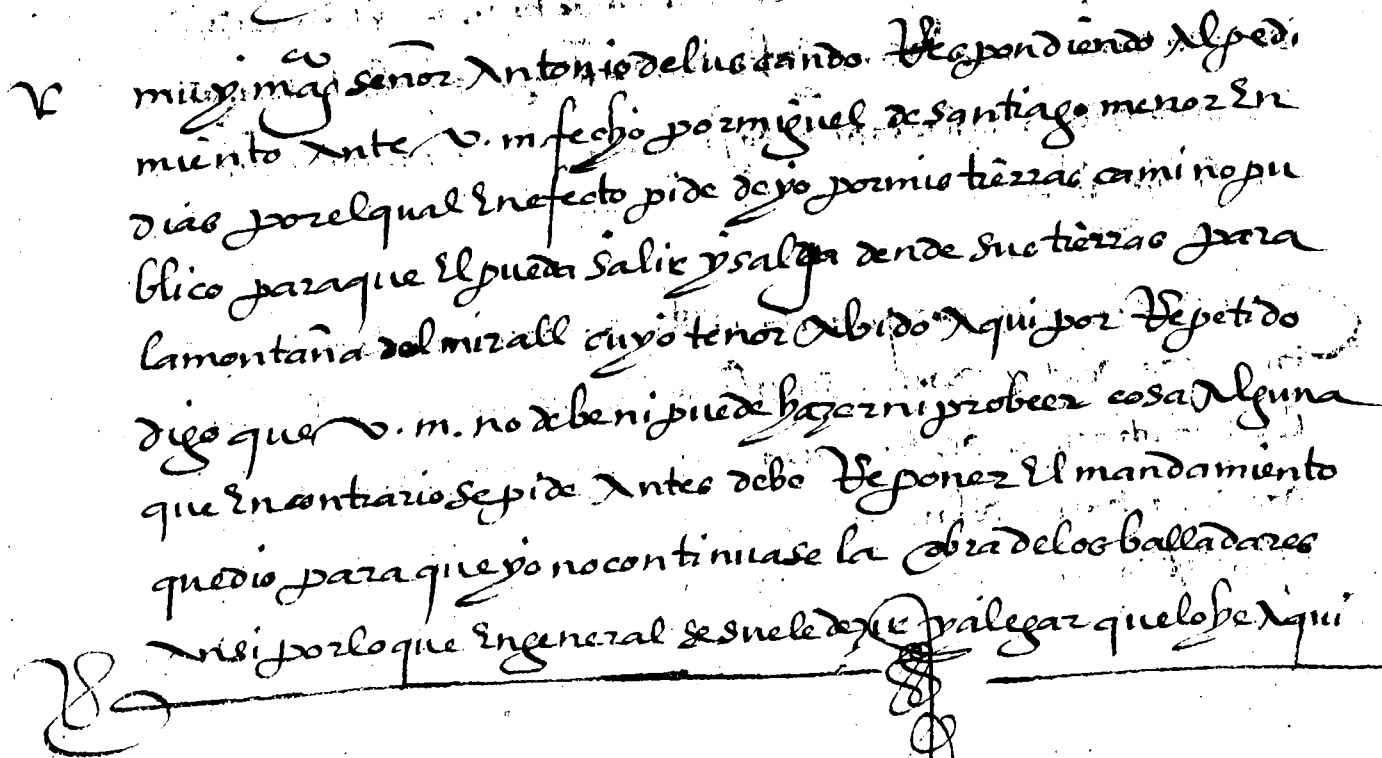 muy mag^co señor Antonio de luscando Respondiendo Al pedi
miento Ante v. m. fecho por miguel de santiago menor En
dias por el qual En efecto pide de yo por mis tierras camino pu
blico para que El pueda salir y salga dende sus tierras para
la montaña del mirall cuyo tenor Abido Aqui por Repetido
digo que v. m. no debe ni puede hazer ni probeer cosa Alguna
que En contrario se pide Antes debe Reponer El mandamiento
que dio para que yo no continuase la obra de los balladares
Ansi por lo que En general se suele dezir y alegar que lo he Aqui